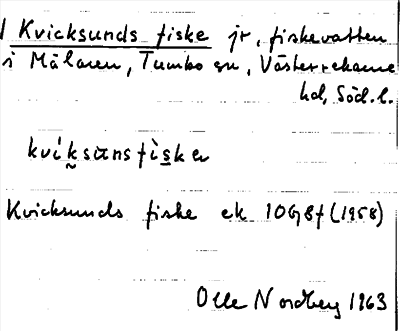 Kvicksunds fiske jr, fiskevatten
i Mälaren, Tumbo sn, Västerrekarne
hd, Södl.
kviksunsfisker
Kvicksunds fiske ek 10G8f (1958)
Olle Nordberg 1963